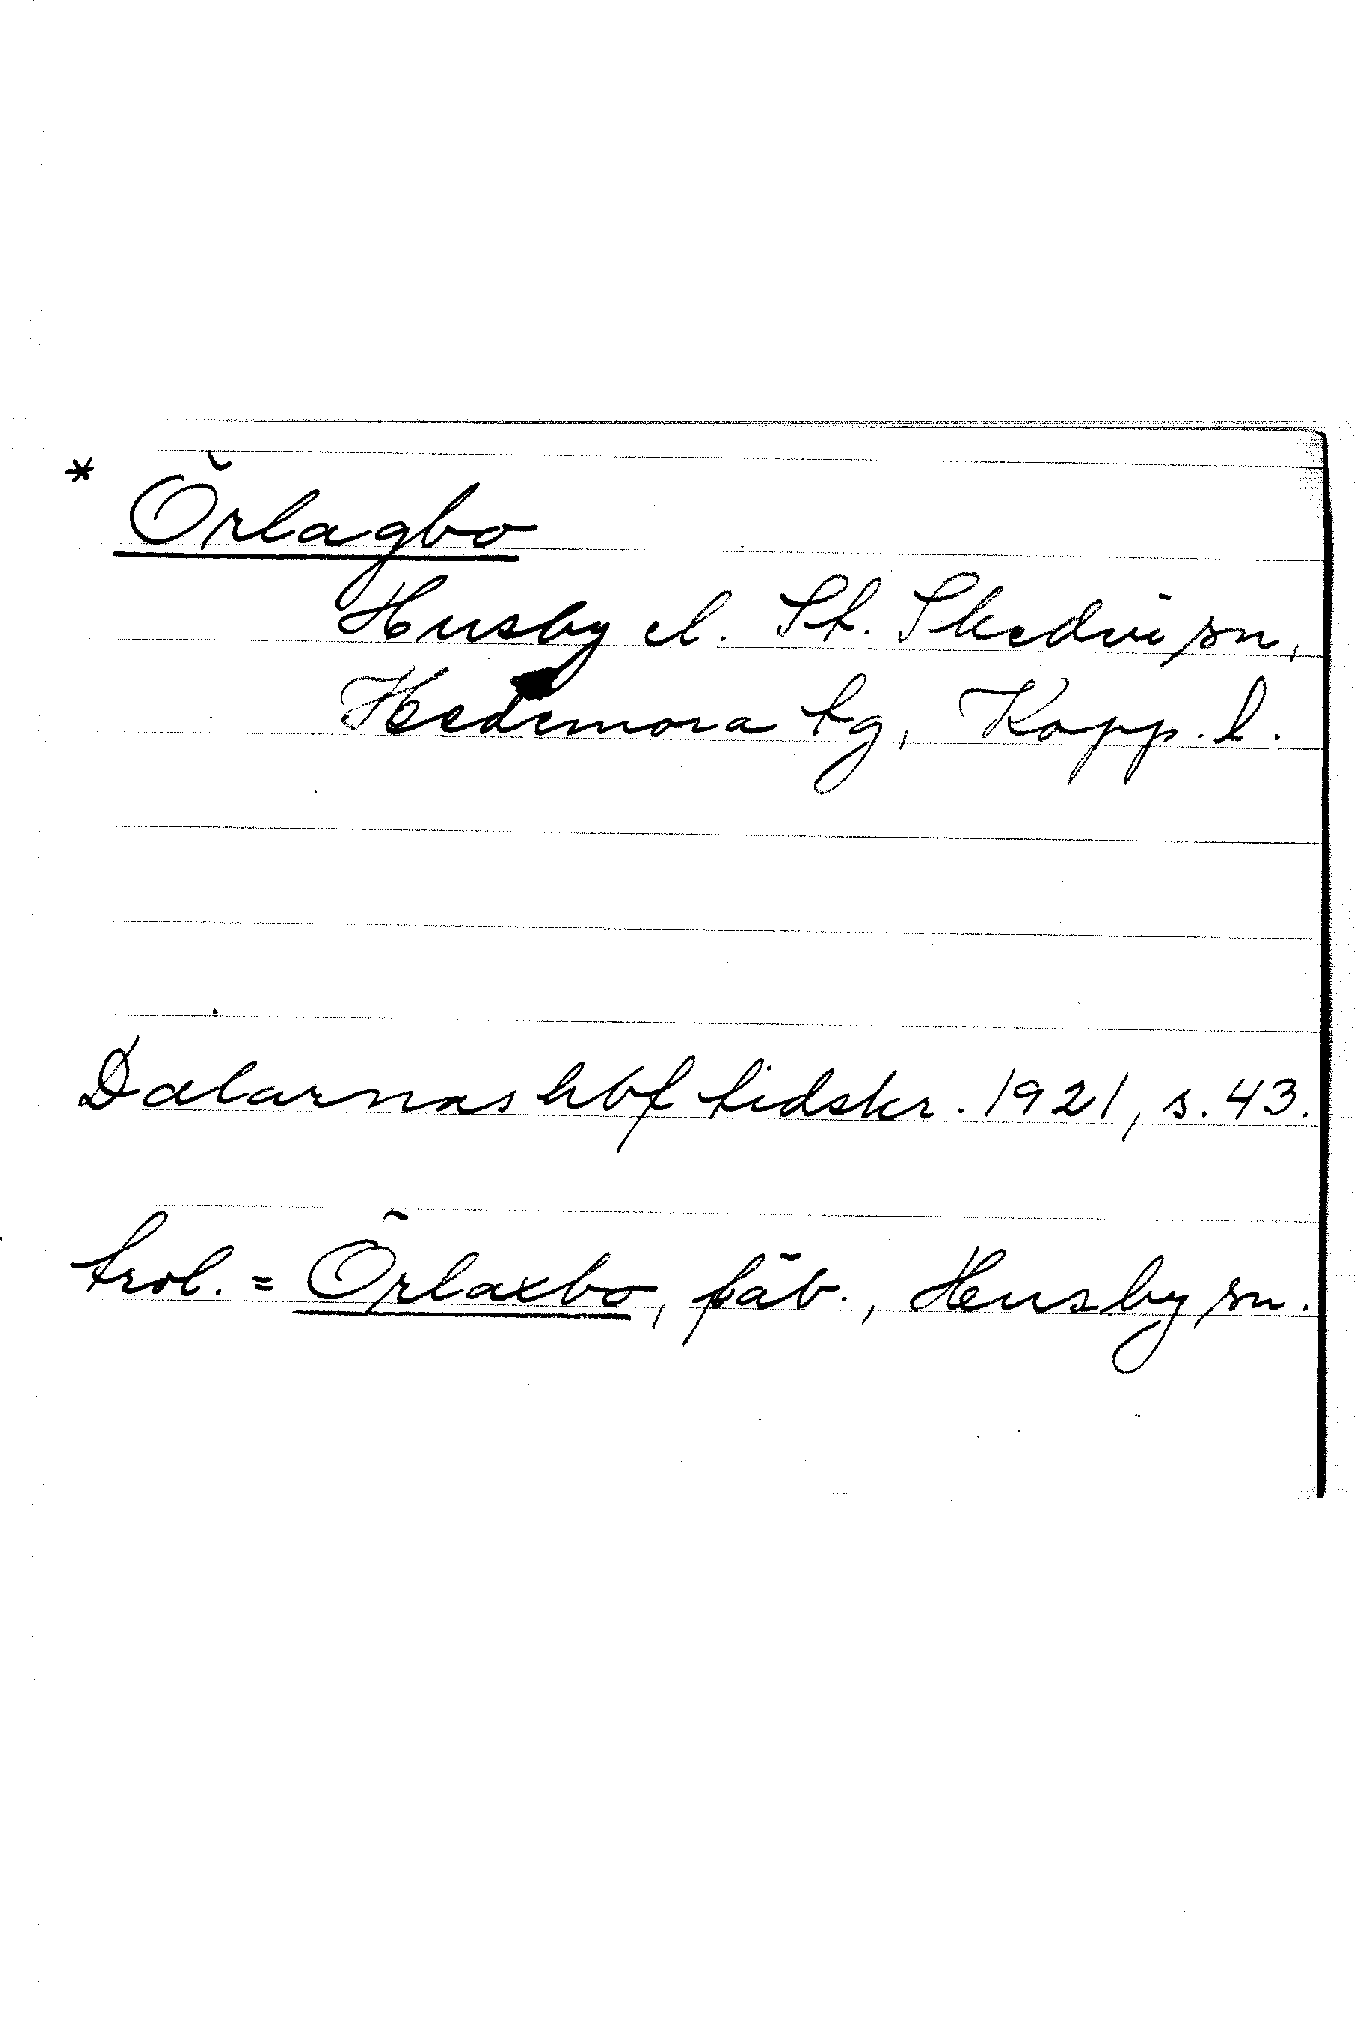 * Örlagbo
Husby el. St. Skedvi sn,
Hedemora tg, Kopp. l.
Dalarnas hbf tidskr. 1921, s. 43.
trol. = Örlaxbo, fäb., Husby sn.